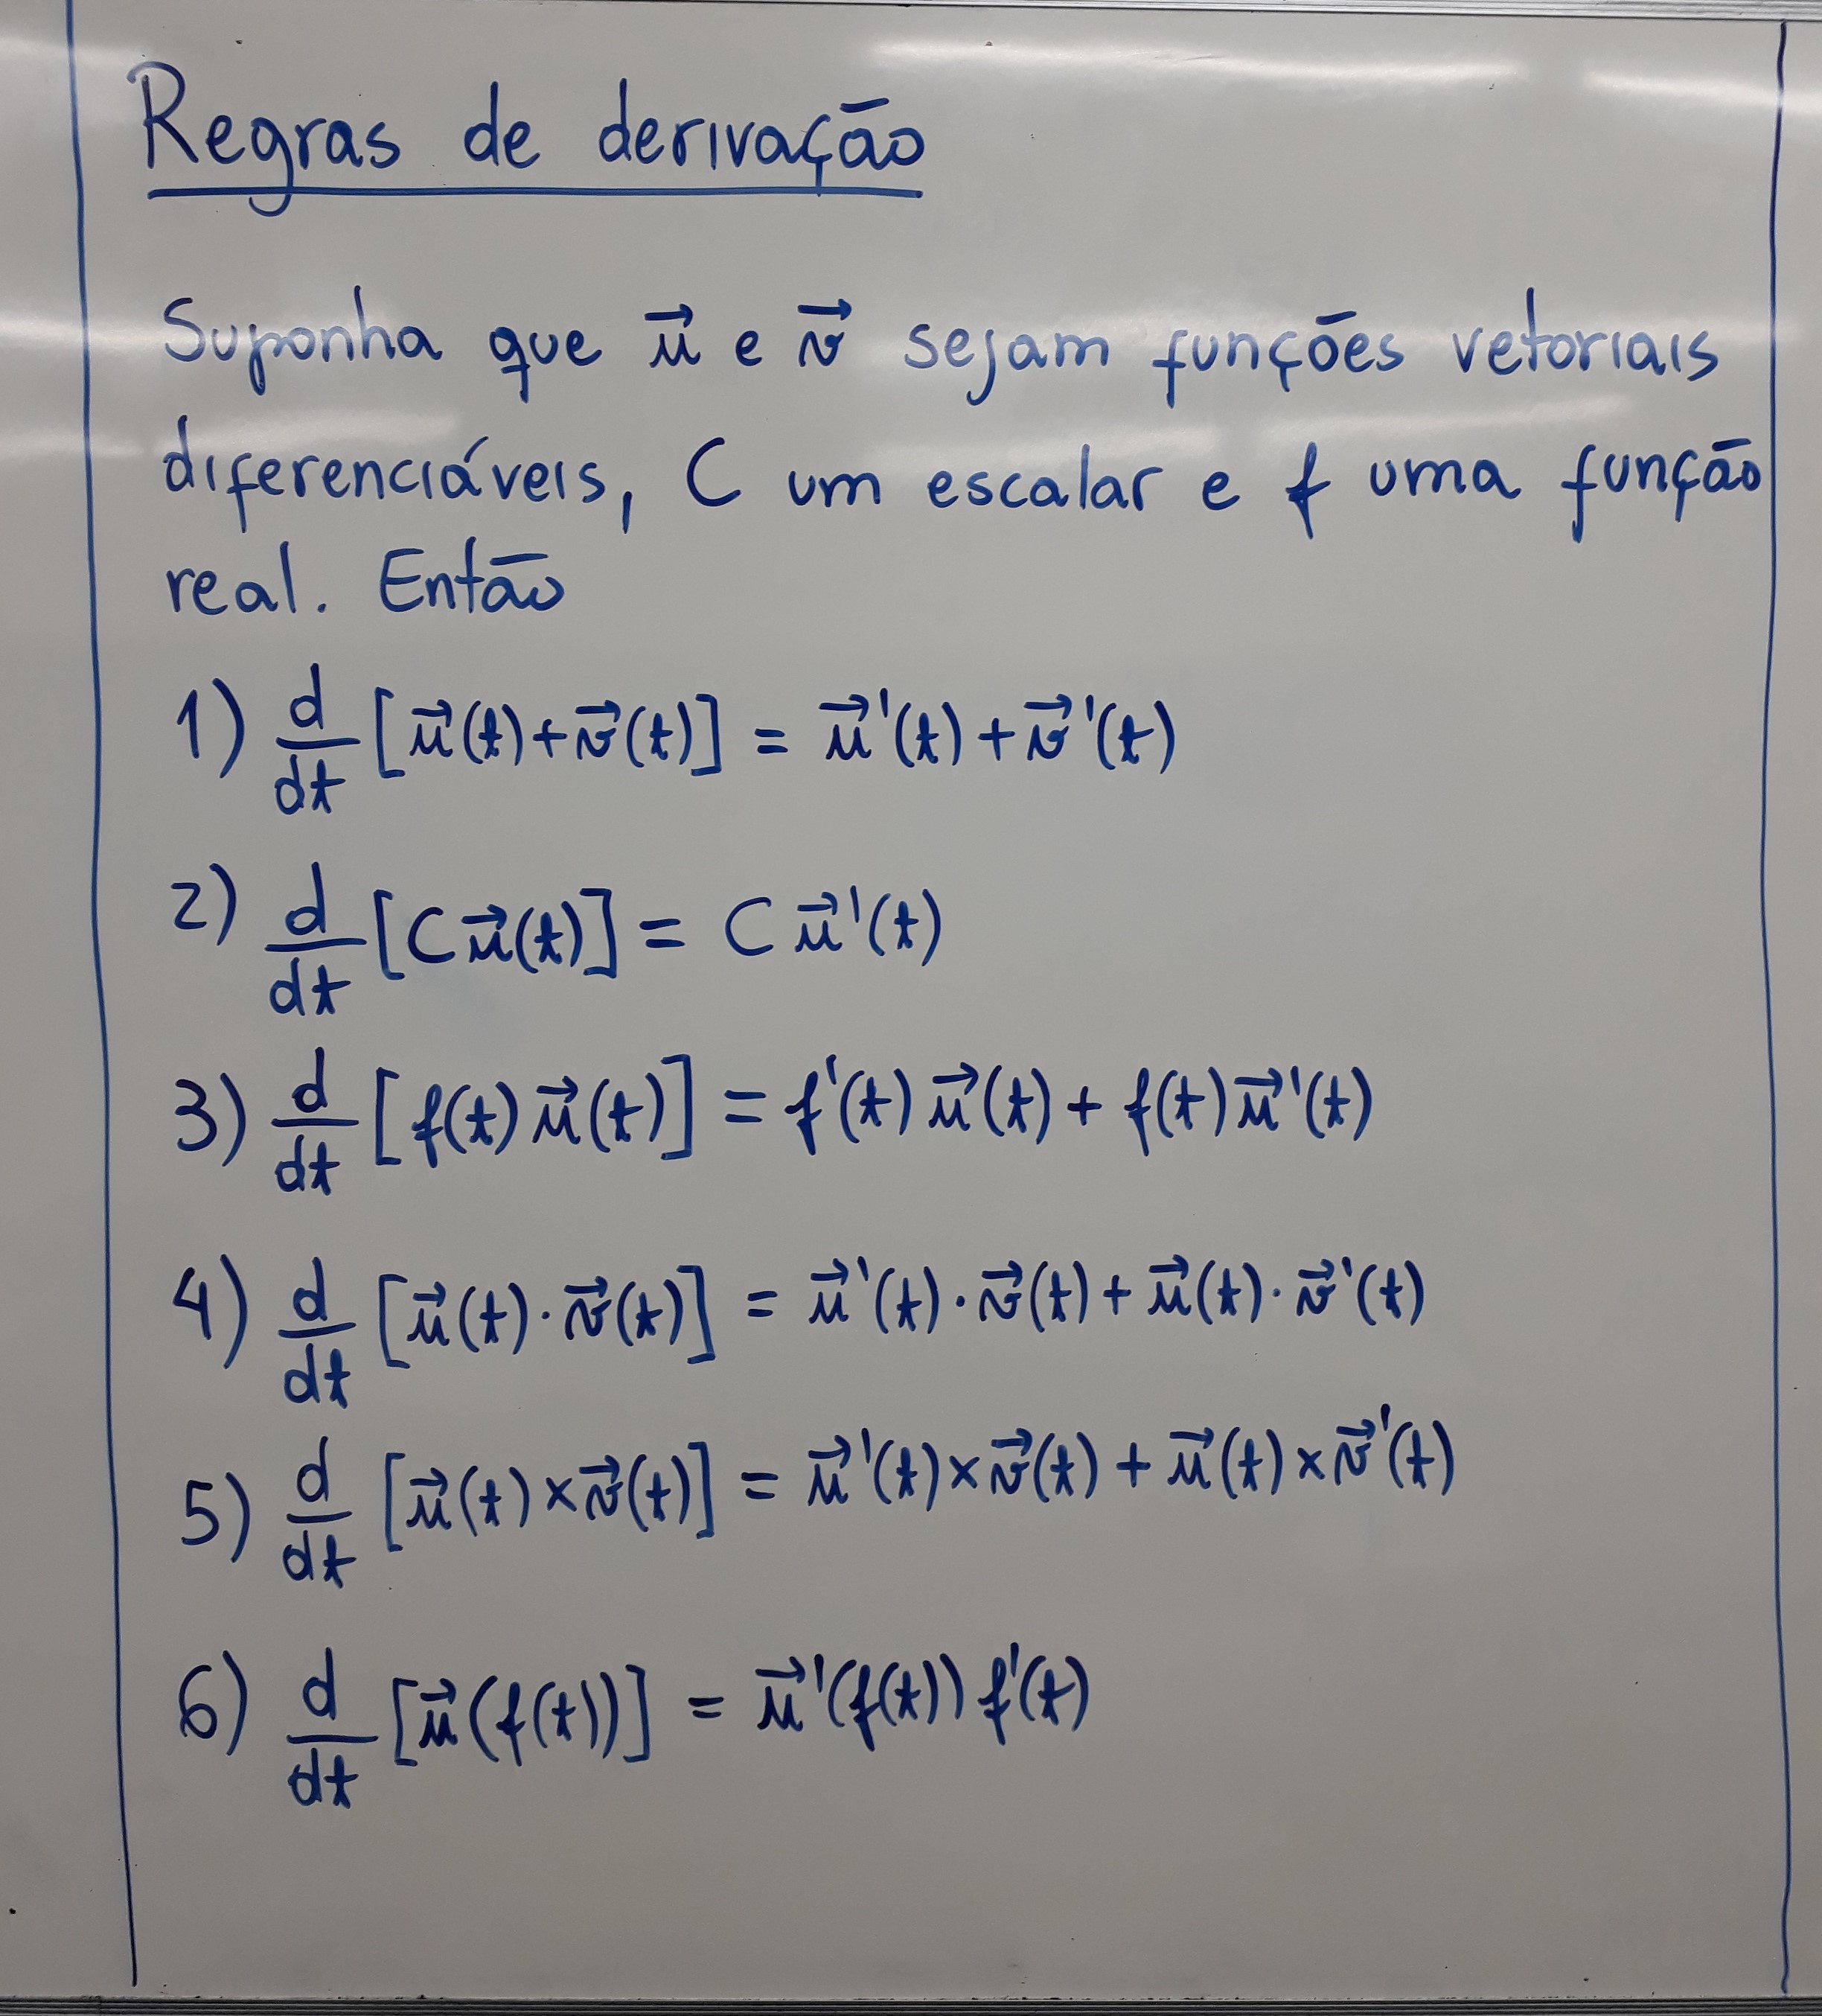 Regras de derivação
Suponha que u⃗ e v⃗ sejam funções vetoriais
diferenciáveis, C um escalar e f uma função
real. Então
1) d/dt [u⃗(t)+v⃗(t)] = u⃗'(t)+v⃗'(t)
2) d/dt [C u⃗(t)] = C u⃗'(t)
3) d/dt [f(t) u⃗(t)] = f'(t) u⃗(t) + f(t) u⃗'(t)
4) d/dt [u⃗(t)·v⃗(t)] = u⃗'(t)·v⃗(t) + u⃗(t)·v⃗'(t)
5) d/dt [u⃗(t)×v⃗(t)] = u⃗'(t)×v⃗(t) + u⃗(t)×v⃗'(t)
6) d/dt [u⃗(f(t))] = u⃗'(f(t)) f'(t)